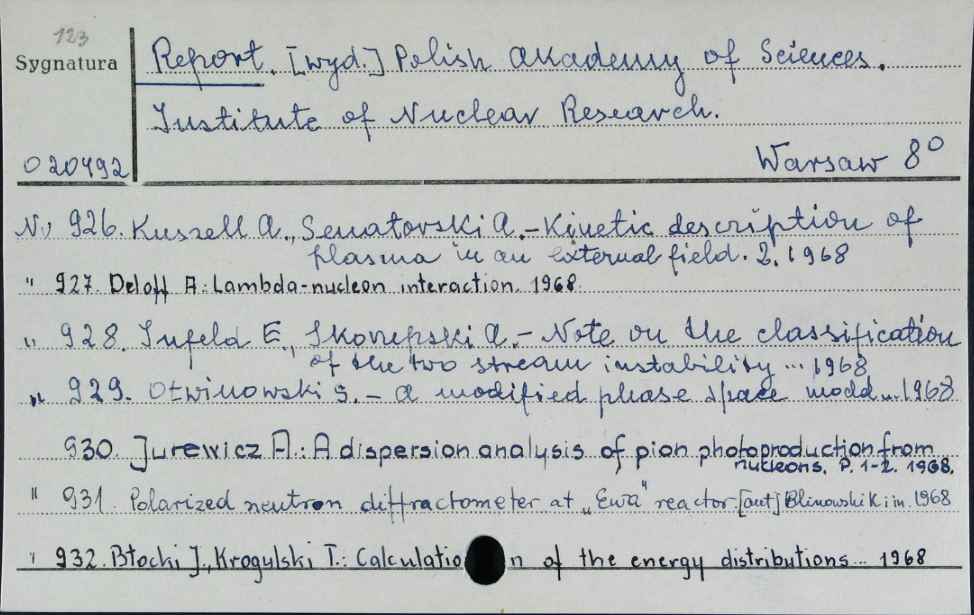 123
Sygnatura
Report. [wyd.] Polish Akademy of Sciences.
Institute of Nuclear Research.
020492
Warsaw 8°
N, 926. Kuszell A., Senatorski A. - Kinetic description of
plasma in an external field. 2. 1968
" 927. Deloff A: Lambda-nucleon interaction. 1968.
" 928. Infeld E., Skorupski A. - Note on the classification
of the two stream instability ... 1968
" 929. Otwinowski S. - A modified phase space model ... 1968
930. Jurewicz A.: A dispersion analysis of pion photoproduction from
nucleons. P. 1-2. 1968.
" 931. Polarized neutron diffractometer at „Ewa" reactor. [aut] Blinowski K i in. 1968
" 932. Błocki J., Krogulski T.: Calculation of the energy distributions... 1968